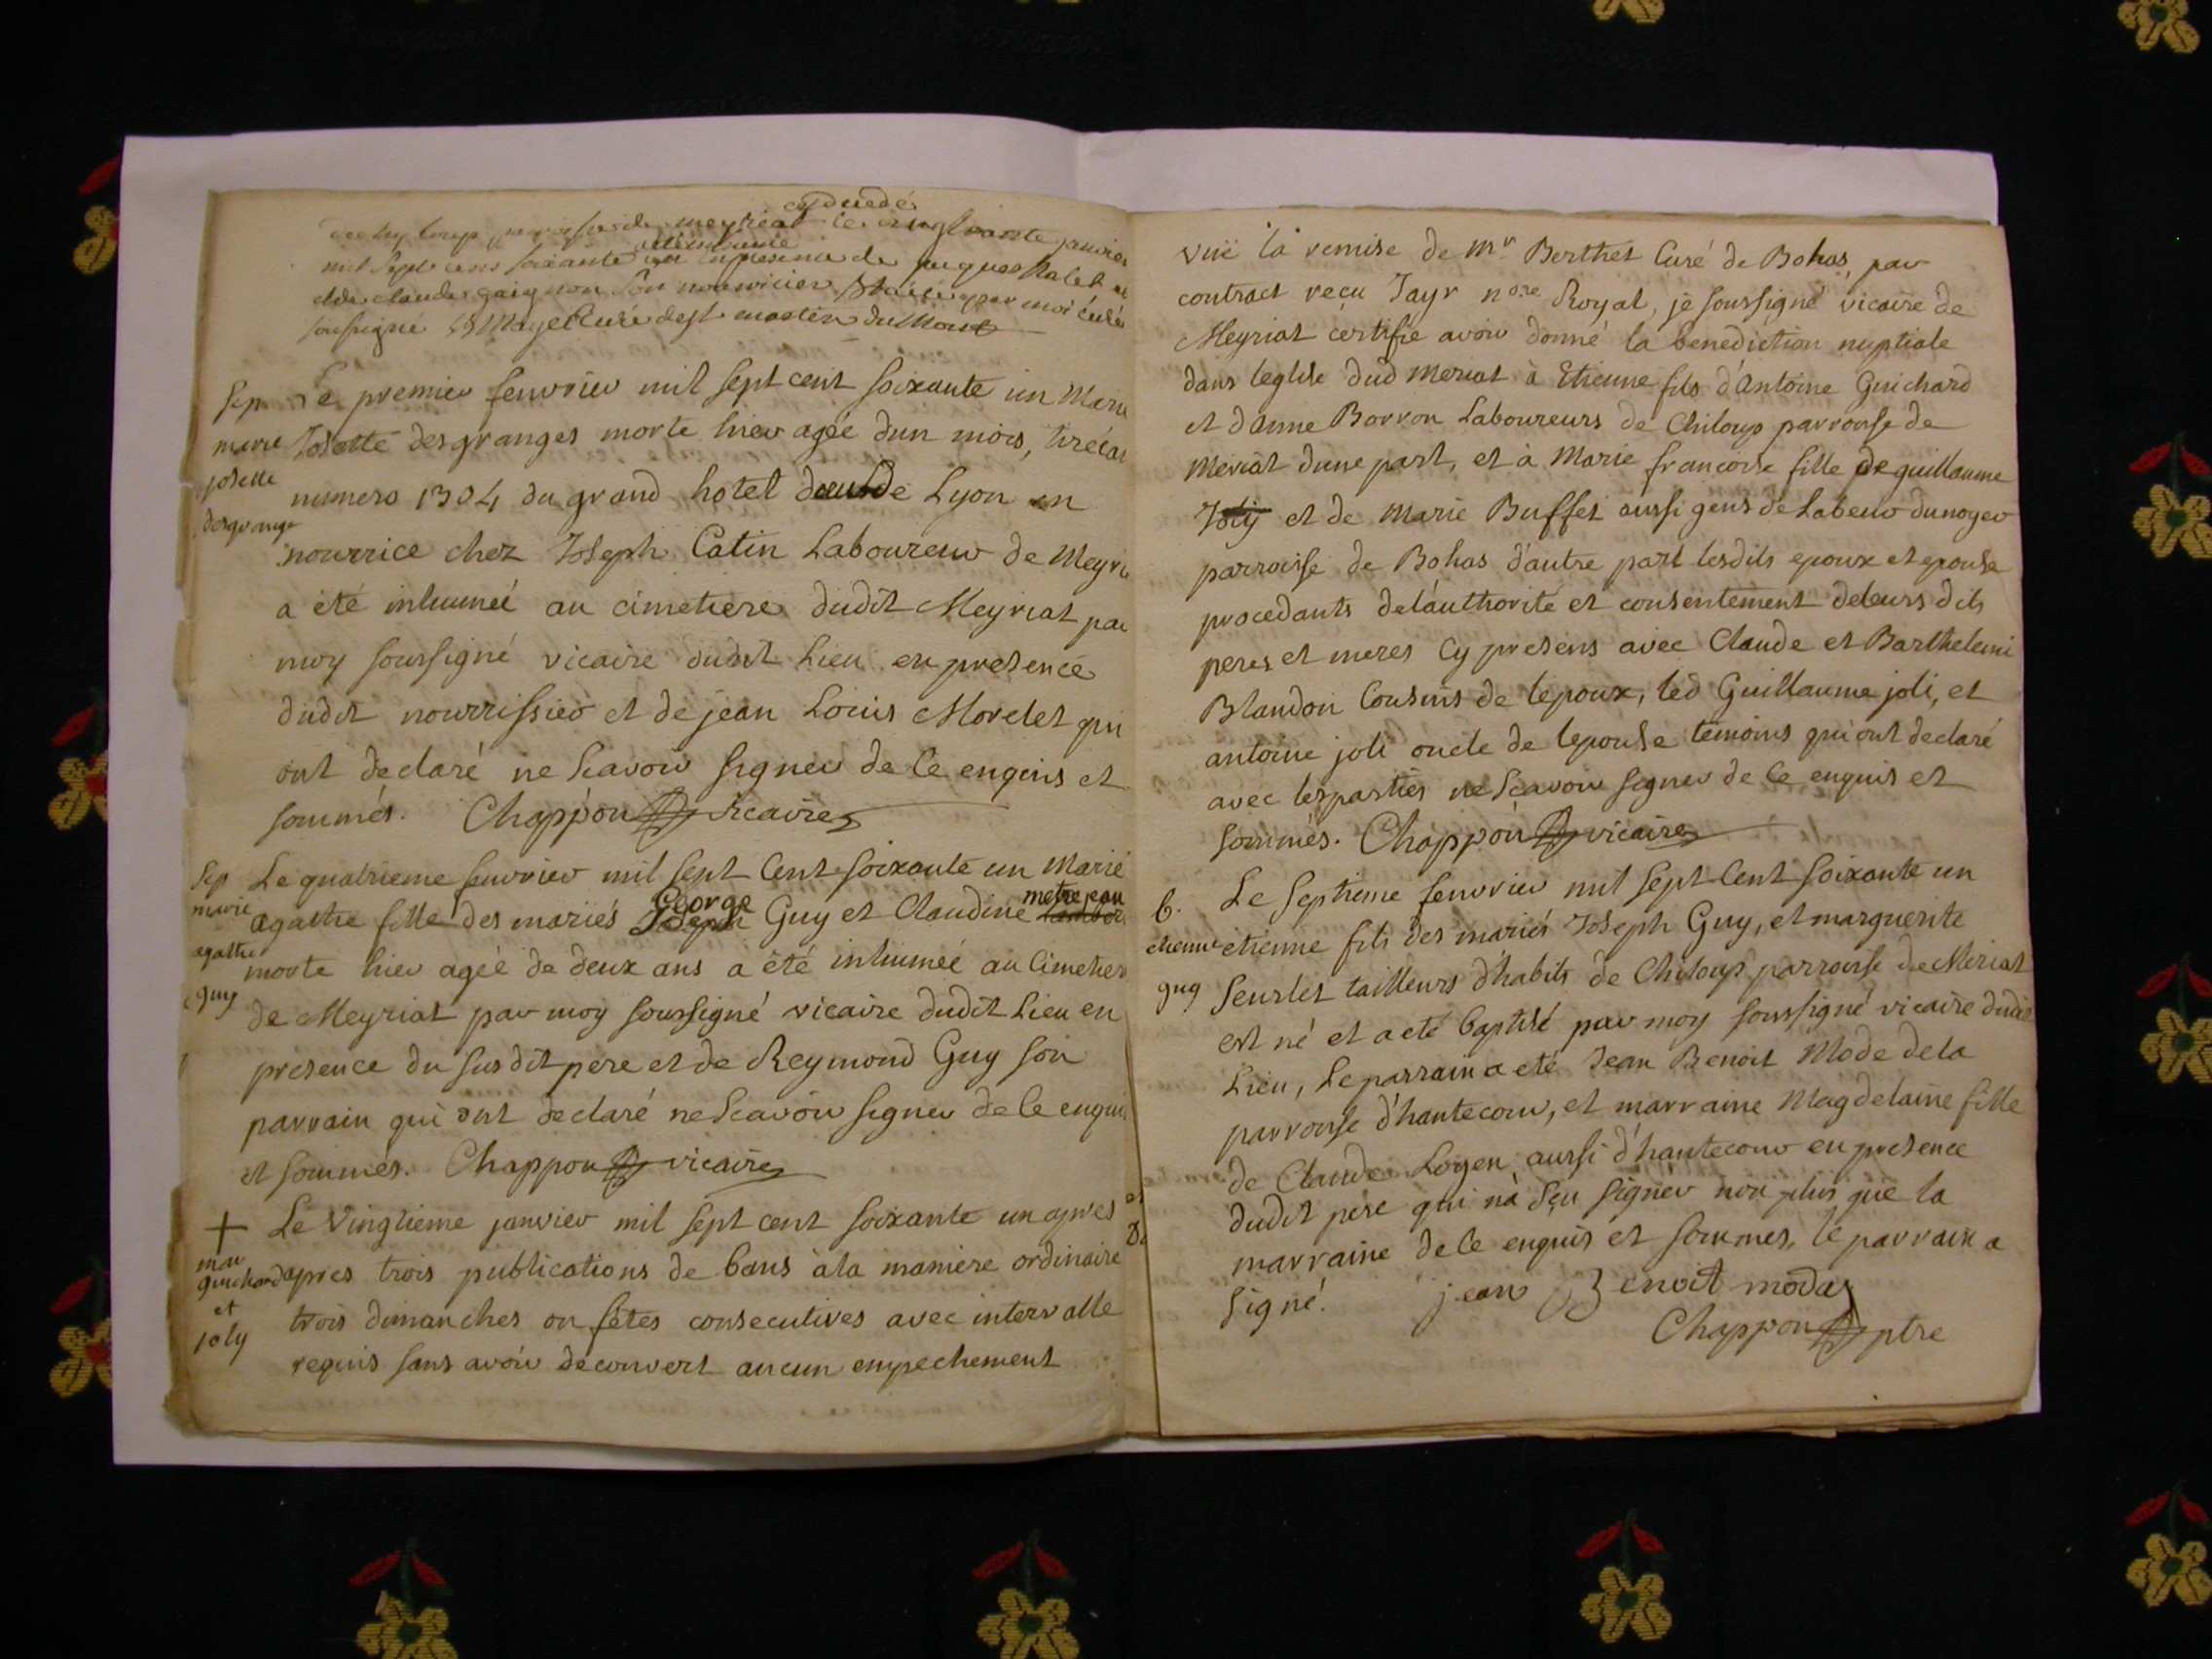 cy
paroisse de meyriat le janvier
mil sept cens soixante un en presence de jacques
et de claude son nourricier par moi curé
soussigné
Sep
marie
josette
desgrange
Le premier fevvrier mil sept cent soixante un Marie
Josette desgranges morte hier agée dun mois,
numero 1304 du grand hotel de Lyon en
nourrice chez Joseph Catin Laboureur de Meyri
a été inhumée au cimetiere dudit Meyriat par
moy soussigné vicaire dudit Lieu en presence
dudit nourrissier et de jean Louis Morelet qui
ont declaré ne scavoir signer de ce enquis et
sommés. Chappon vicaire
Sep
marie
agathe
guy
Le quatrieme fevvrier mil sept Cent soixante un Marie
agathe fille des mariés Joseph George Guy et Claudine metrejean
morte hier agée de deux ans a été inhumée au Cimetier
de Meyriat par moy soussigné vicaire dudit Lieu en
presence du susdit pere et de Reymond Guy son
parrain qui ont declaré ne scavoir signer de ce enquis
et sommés. Chappon vicaire
+
mar
guichard
et
joly
Le Vingtieme janvier mil sept cent soixante un apres
apres trois publications de bans à la maniere ordinaire
trois dimanches ou fêtes consecutives avec intervalle
requis sans avoir decouvert aucun empechement
vuë la remise de Mr. Berthet Curé de Bohas par
contract reçu Jayr nore Royal, je soussigné vicaire de
Meyriat certifie avoir donné la benediction nuptiale
dans leglise dud meriat à Etienne fils d'Antoine Guichard
et d'anne Borron Laboureurs de Chiloup parroisse de
Meriat dune part, et à Marie francoise fille de guillaume
Joly et de Marie Buffet aussi gens de Labeur dunoyer
parroisse de Bohas d'autre part lesdits epoux et epouse
procedants de l'authorité et consentement de leurs dits
peres et meres cy presens avec Claude et Barthelemi
Blandon Cousins de lepoux, led Guillaume joli, et
antoine joli oncle de lepouse temoins qui ont declaré
avec les parties ne scavoir signer de ce enquis et
sommés. Chappon vicaire
b.
etienne
guy
Le Septieme fevvrier mil sept Cent soixante un
etienne fils des mariés Joseph Guy, et marguerite
Seurlet tailleurs d'habits de Chiloup parroisse de Meriat
est né et a eté baptisé par moy soussigné vicaire dudit
Lieu, Le parrain a eté Jean Benoit Mode dela
parroisse d'hautecour, et marraine Magdelaine fille
de Claude Loyen aussi d'hautecour en presence
dudit pere qui n'a sçu signer non plus que la
marraine de ce enquis et sommes, le parrain a
signé. jean Benoit moda
Chappon ptre